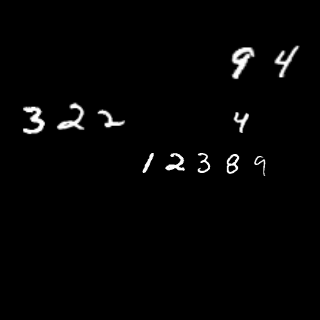 94
322
4
12389